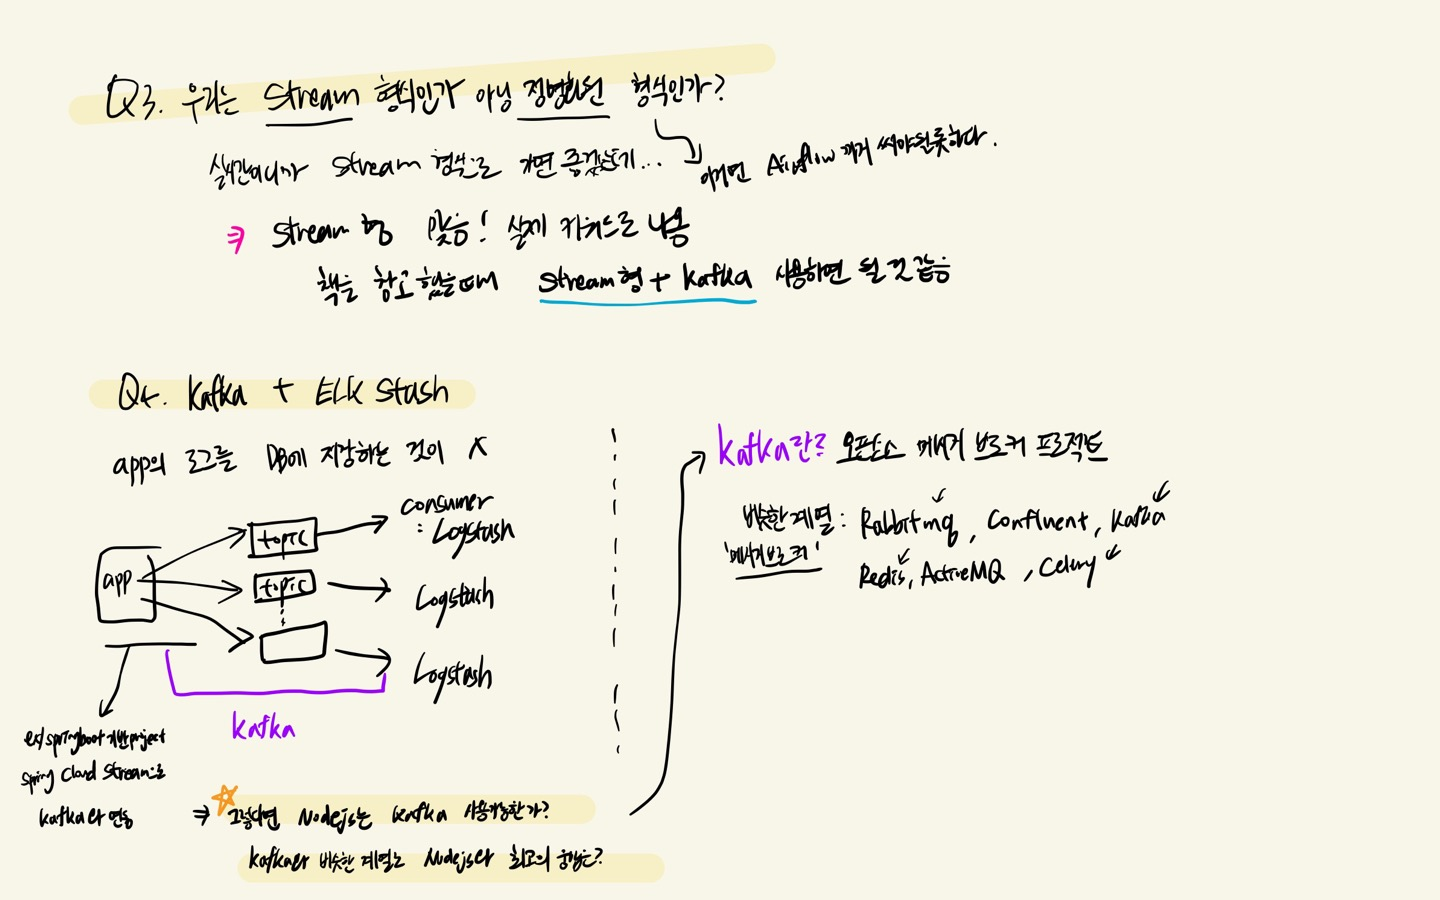 Q3. 우리는 Stream 형식인가 아님 정형화된 형식인가?
실시간이니까 Stream 형식으로 가면 좋겠는데...
이러면 Airflow 까지 써야될듯하다.
⇒ Stream형 맞음! 실제 키워드로 나옴
책을 참고했을때 Stream형 + kafka 사용하면 될 것 같음
Q4. kafka + ELK Stash
app의 로그를 DB에 저장하는 것이 X
app
topic
topic
consumer
: Logstash
Logstash
Logstash
kafka
ex) springboot 기반 project
Spring Cloud Stream으로
kafka와 연동
⇒ 그렇다면 Nodejs는 kafka 사용가능한가?
kafka와 비슷한 계열로 Nodejs와 최고의 궁합은?
kafka란? 오픈소스 메시지 브로커 프로젝트
비슷한 계열 : Rabbitmq, Confluent, Kafka
'메시지브로커'
Redis, ActiveMQ, Celery